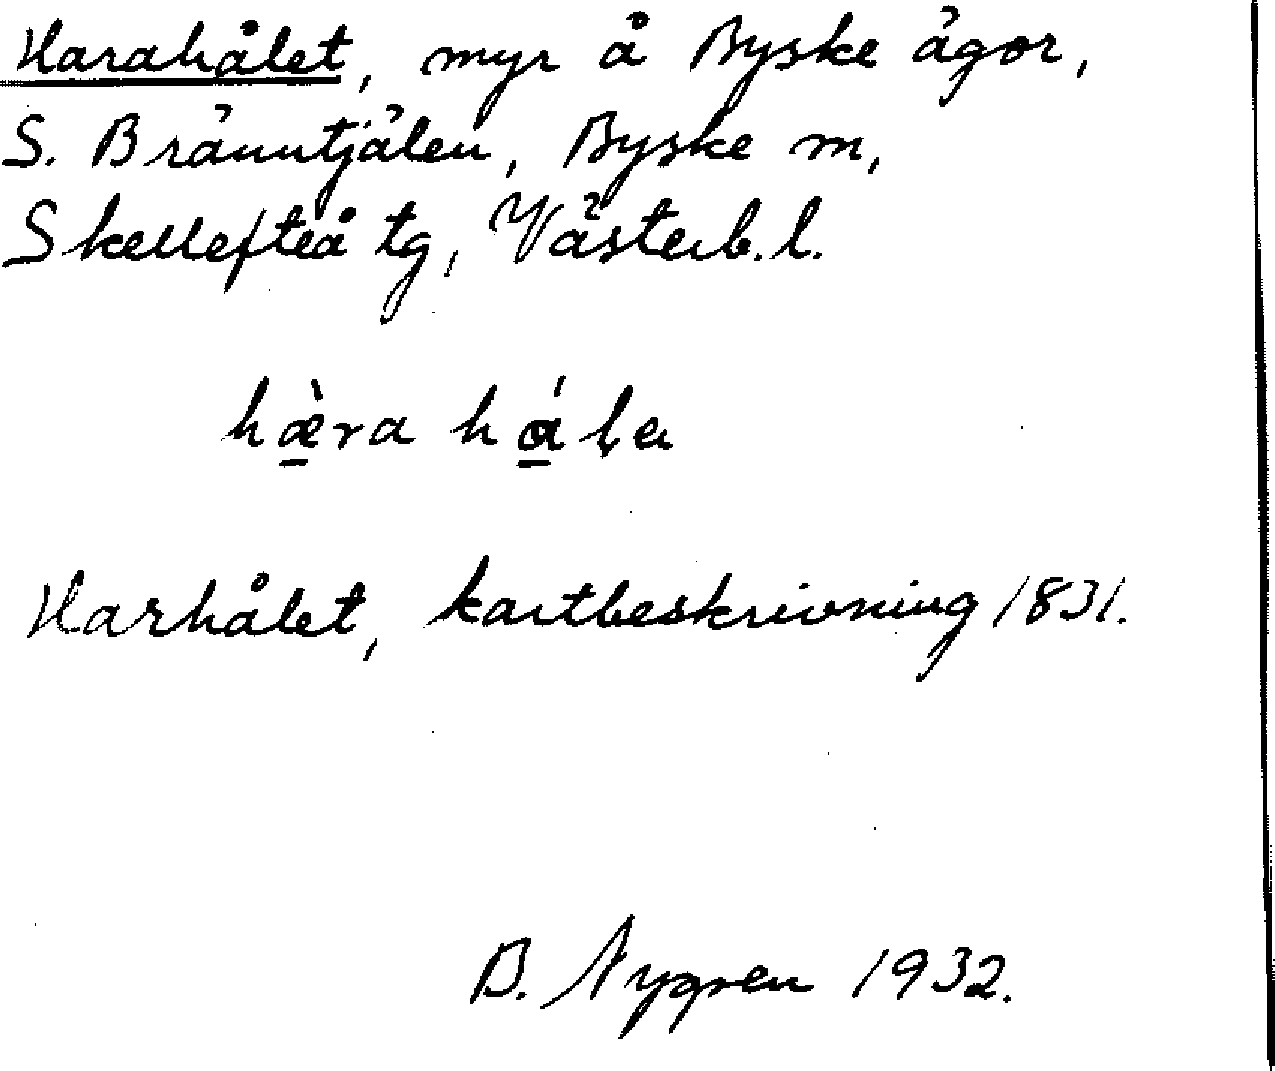 Harahålet, myr å Byske ägor,
S. Bränntjälen, Byske sn,
Skellefteå tg, Västerb. l.
hæ̀ra hálɐ
Harhålet, kartbeskrivning 1831.
B. Nygren 1932.